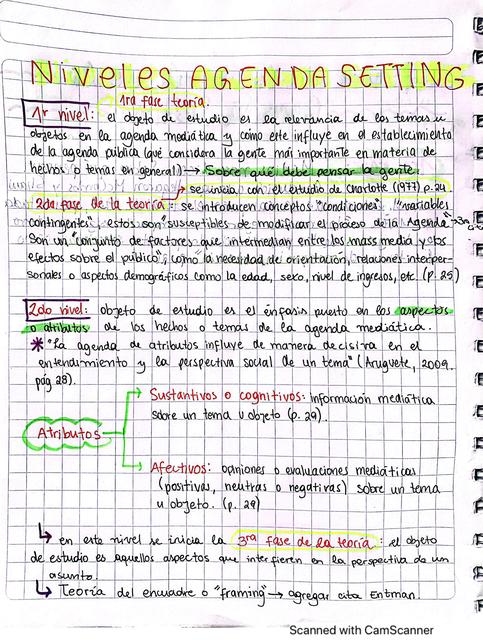 NIVELES AGENDA SETTING
1ra fase teoría.
1r nivel: el objeto de estudio es la relevancia de los temas u
objetos en la agenda mediática y como este influye en el establecimiento
de la agenda pública (qué considera la gente más importante en materia de
hechos o temas en general) → Sobre qué debe pensar la gente.
→ se inicia con el estudio de Charlotte (1977) p. 24.
2da fase de la teoría: se introducen conceptos "condiciones", "variables
contingentes", estos son "susceptibles de modificar el proceso de la Agenda"
Son un "conjunto de factores que intermedian entre los mass media y los
efectos sobre el público", como la necesidad de orientación, relaciones interper-
sonales o aspectos demográficos como la edad, sexo, nivel de ingresos, etc (p. 25)
2do nivel: objeto de estudio es el énfasis puesto en los aspectos
o atributos de los hechos o temas de la agenda mediática.
* "La agenda de atributos influye de manera decisiva en el
entendimiento y la perspectiva social de un tema" (Aruguete, 2009.
pág 28).
Sustantivos o cognitivos: información mediática
sobre un tema u objeto (p. 29).
Atributos
Afectivos: opiniones o evaluaciones mediáticas
(positivas, neutras o negativas) sobre un tema
u objeto. (p. 29)
↳ en este nivel se inicia la 3ra fase de la teoría: el objeto
de estudio es aquellos aspectos que interfieren en la perspectiva de un
asunto.
↳ Teoría del encuadre o "framing" → agregar cita Entman.
Scanned with CamScanner